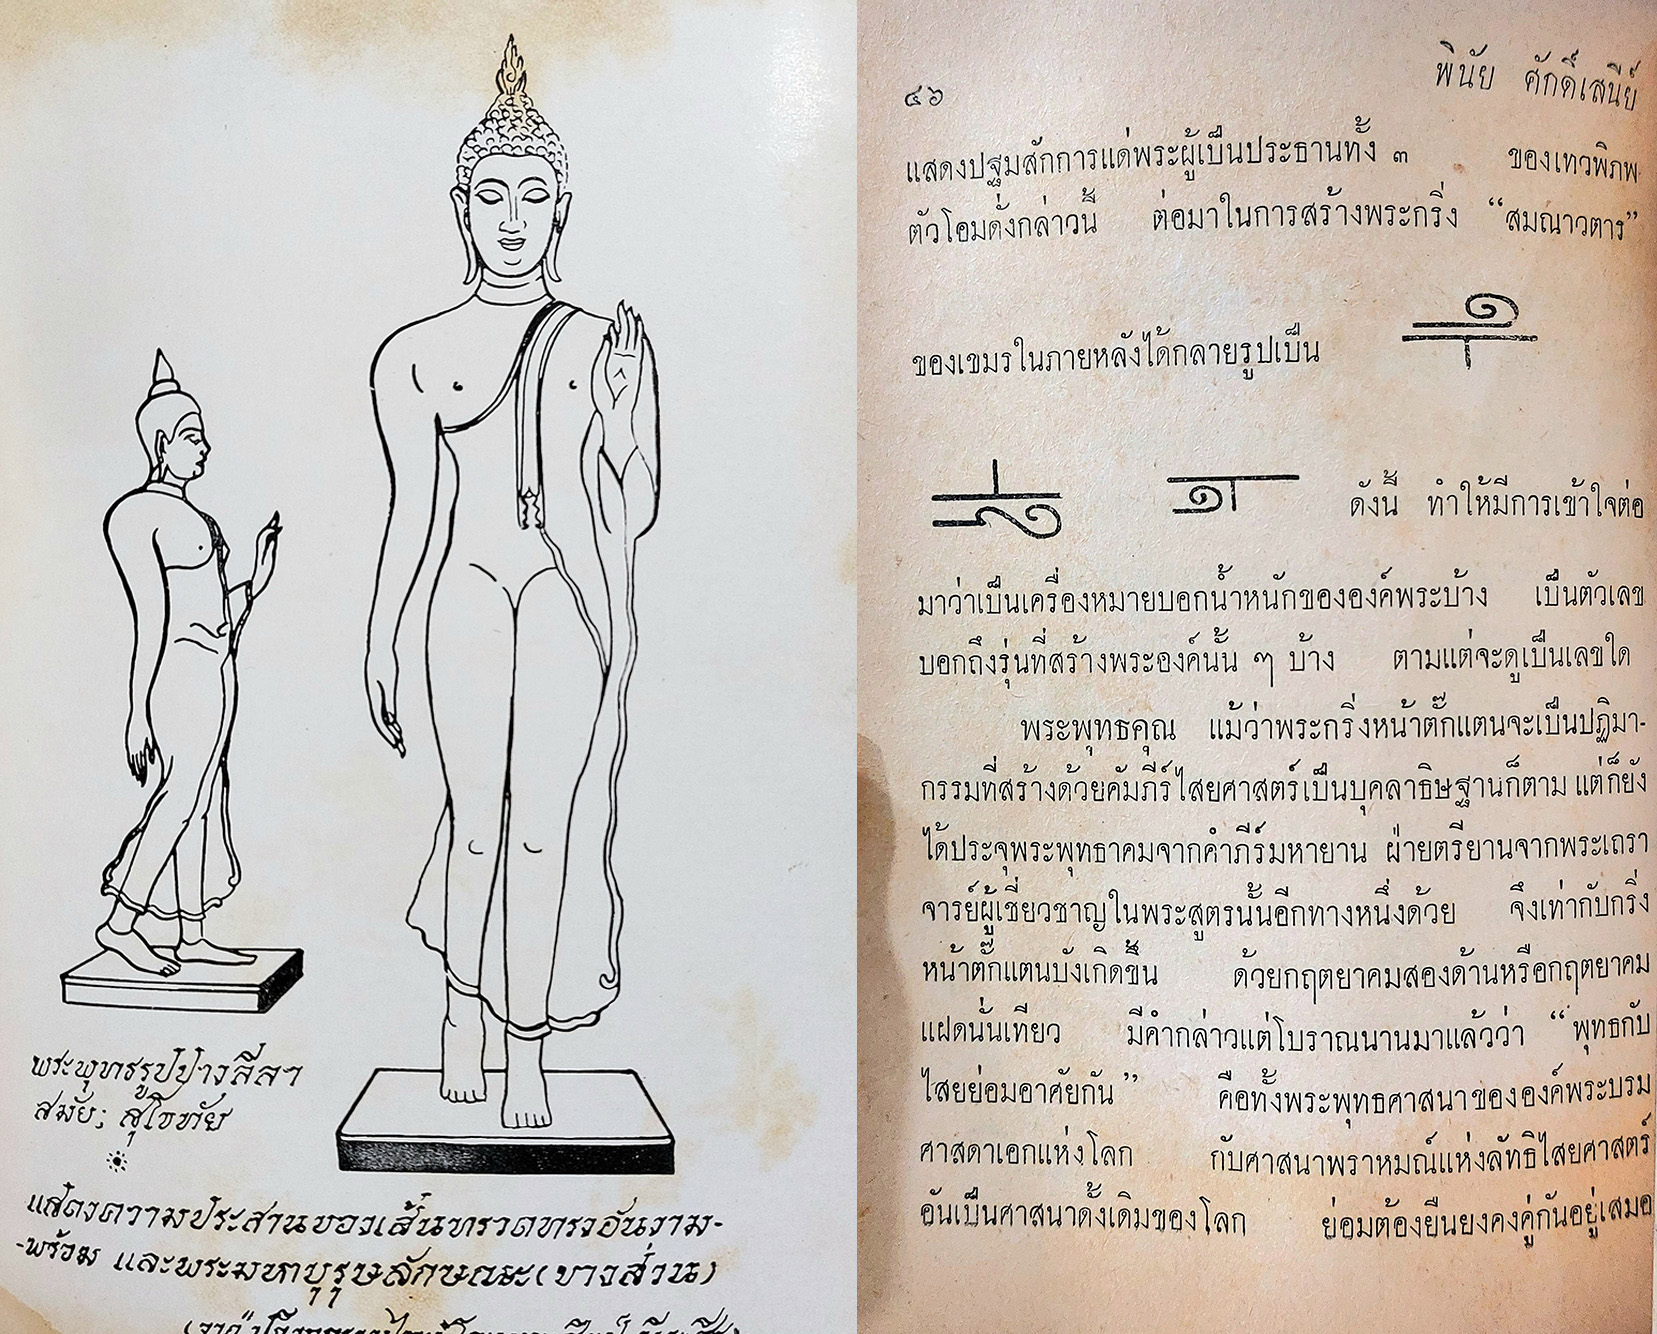 พระพุทธรูปปางลีลา
สมัย; สุโขทัย
แสดงความประสานของเส้นทรวดทรงอันงาม-
-พร้อม และพระมหาบุรุษลักษณะ(บางส่วน)
๔๖
พินัย ศักดิ์เสนีย์
แสดงปฐมสักการแด่พระผู้เป็นประธานทั้ง ๓ ของเทวพิภพ
ตัวโอมดั่งกล่าวนี้ ต่อมาในการสร้างพระกริ่ง “สมณาวตาร”
ของเขมรในภายหลังได้กลายรูปเป็น
ดังนี้ ทำให้มีการเข้าใจต่อ
มาว่าเป็นเครื่องหมายบอกน้ำหนักขององค์พระบ้าง เป็นตัวเลข
บอกถึงรุ่นที่สร้างพระองค์นั้น ๆ บ้าง ตามแต่จะดูเป็นเลขใด
พระพุทธคุณ แม้ว่าพระกริ่งหน้าตั๊กแตนจะเป็นปฏิมา-
กรรมที่สร้างด้วยคัมภีร์ไสยศาสตร์เป็นบุคลาธิษฐานก็ตาม แต่ก็ยัง
ได้ประจุพระพุทธาคมจากคำภีร์มหายาน ฝ่ายตรียานจากพระเถรา
จารย์ผู้เชี่ยวชาญในพระสูตรนั้นอีกทางหนึ่งด้วย จึงเท่ากับกริ่ง
หน้าตั๊กแตนบังเกิดขึ้น ด้วยกฤตยาคมสองด้านหรือกฤตยาคม
แฝดนั่นเทียว มีคำกล่าวแต่โบราณนานมาแล้วว่า “พุทธกับ
ไสยย่อมอาศัยกัน” คือทั้งพระพุทธศาสนาขององค์พระบรม
ศาสดาเอกแห่งโลก กับศาสนาพราหมณ์แห่งลัทธิไสยศาสตร์
อันเป็นศาสนาดั้งเดิมของโลก ย่อมต้องยืนยงคงคู่กันอยู่เสมอ